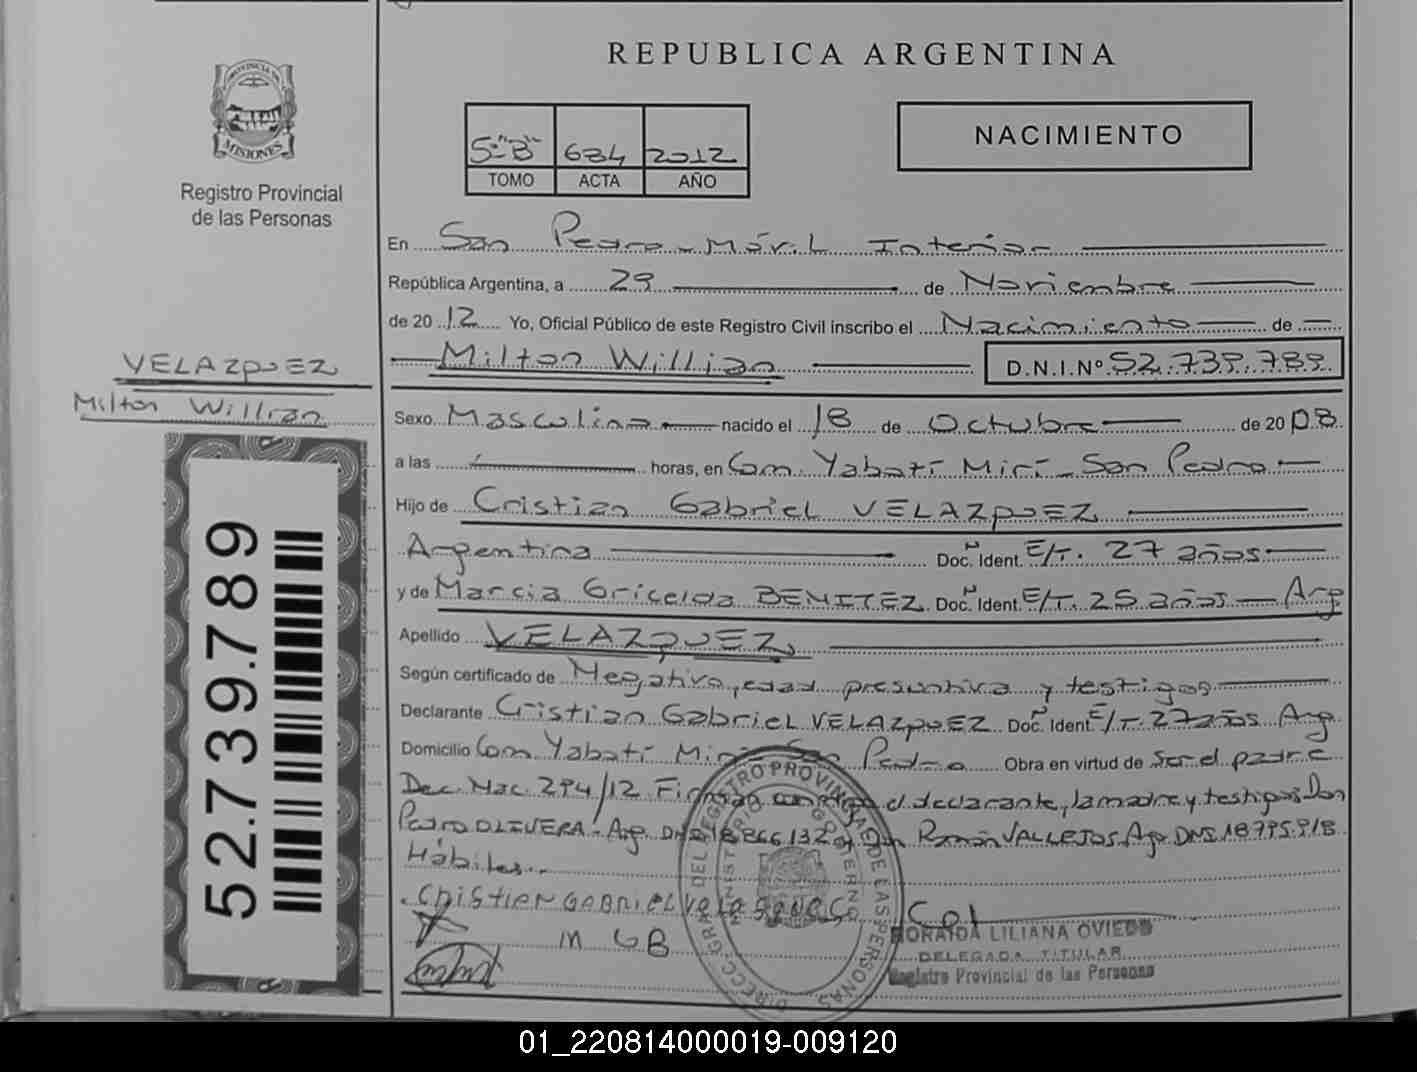 REPUBLICA ARGENTINA
PROVINCIA DE
MISIONES
Registro Provincial
de las Personas
5º"B" 684 2012
TOMO ACTA AÑO
NACIMIENTO
En San Pedro - Móvil Interior
República Argentina, a 29 de Noviembre
de 2012 Yo, Oficial Público de este Registro Civil inscribo el Nacimiento de
Milton Willian D.N.I.Nº 52.739.789
VELAZQUEZ
Milton Willian
Sexo Masculino nacido el 18 de Octubre de 2008
a las horas, en Com. Yabotí Mirí - San Pedro
Hijo de Cristian Gabriel VELAZQUEZ
Argentina Doc. Ident. E/T. 27 años
y de Marcia Griselda BENITEZ Doc. Ident. E/T. 25 años - Arg
Apellido VELAZQUEZ
Según certificado de Negativo, edad presuntiva y testigos
Declarante Cristian Gabriel VELAZQUEZ Doc. Ident. E/T. 27 años Arg.
Domicilio Com Yabotí Mirí San Pedro Obra en virtud de ser el padre
Dec. Nac. 294/12 Firman conmigo el declarante, la madre y testigos Don
Pedro OLIVERA - Arg. DNI 18866132 Ramón VALLEJOS Arg. DNI 18.795.918
Hábiles..
CRISTIAN GABRIEL
M GB
DIRECC. GRAL DEL REGISTRO PROVINCIAL DE LAS PERSONAS
MINISTERIO GOBIERNO
HORAIDA LILIANA OVIEDO
DELEGADA TITULAR
Registro Provincial de las Personas
52.739.789
01_220814000019-009120